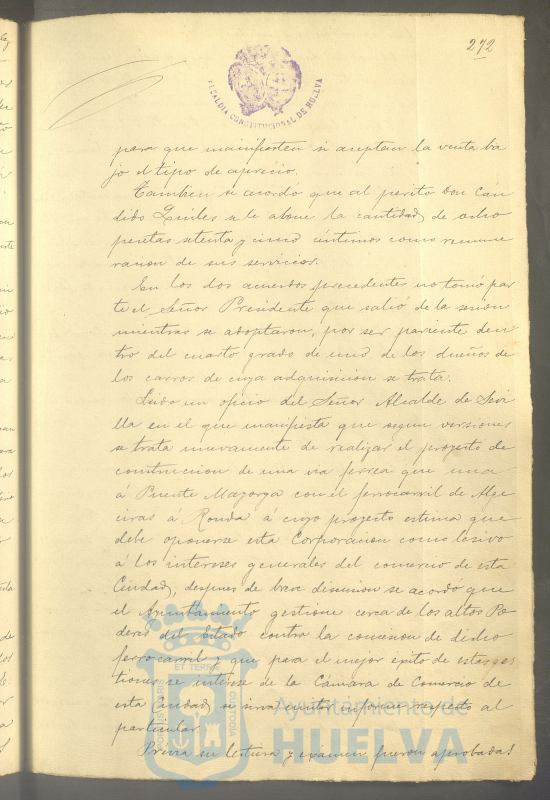 272
ALCALDIA CONSTITUCIONAL DE HUELVA
para que manifiesten si aceptan la venta ba
jo el tipo de aprecio.
Tambien se acordó que al perito Don Cán
dido Quiles se le abone la cantidad de ocho
pesetas setenta y cinco céntimos como remune
racion de sus servicios.
En los dos acuerdos precedentes no tomó par
te el Señor Presidente que salió de la sesion
mientras se adoptaron, por ser pariente den
tro del cuarto grado de uno de los dueños de
los carros de cuya adquisicion se trata.
Leido un oficio del Señor Alcalde de Sevi
lla en el que manifiesta que segun versiones
se trata nuevamente de realizar el proyecto de
construccion de una via ferrea que una
á Puente Mayorga con el ferrocarril de Alge
ciras á Ronda á cuyo proyecto estima que
debe oponerse esta Corporacion como lesivo
á los intereses generales del comercio de esta
Ciudad, despues de breve discusion se acordó que
el Ayuntamiento gestione cerca de los altos Po
deres del Estado contra la concesion de dicho
ferrocarril y que para el mejor éxito de estas ges
tiones se interese de la Cámara de Comercio de
esta Ciudad, se sirva emitir informe respecto al
particular.
Previa su lectura y exámen fueron aprobadas
PORTUS MARIS ET TERRÆ CUSTODIA
Ayuntamiento de
HUELVA